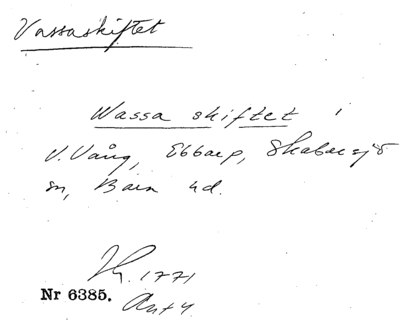 Vassaskiftet
Wassa skiftet i
V. Vång, Ebbarp, Skabersjö
sn, Bara hd.
1771
Nr 6385. Akt 4